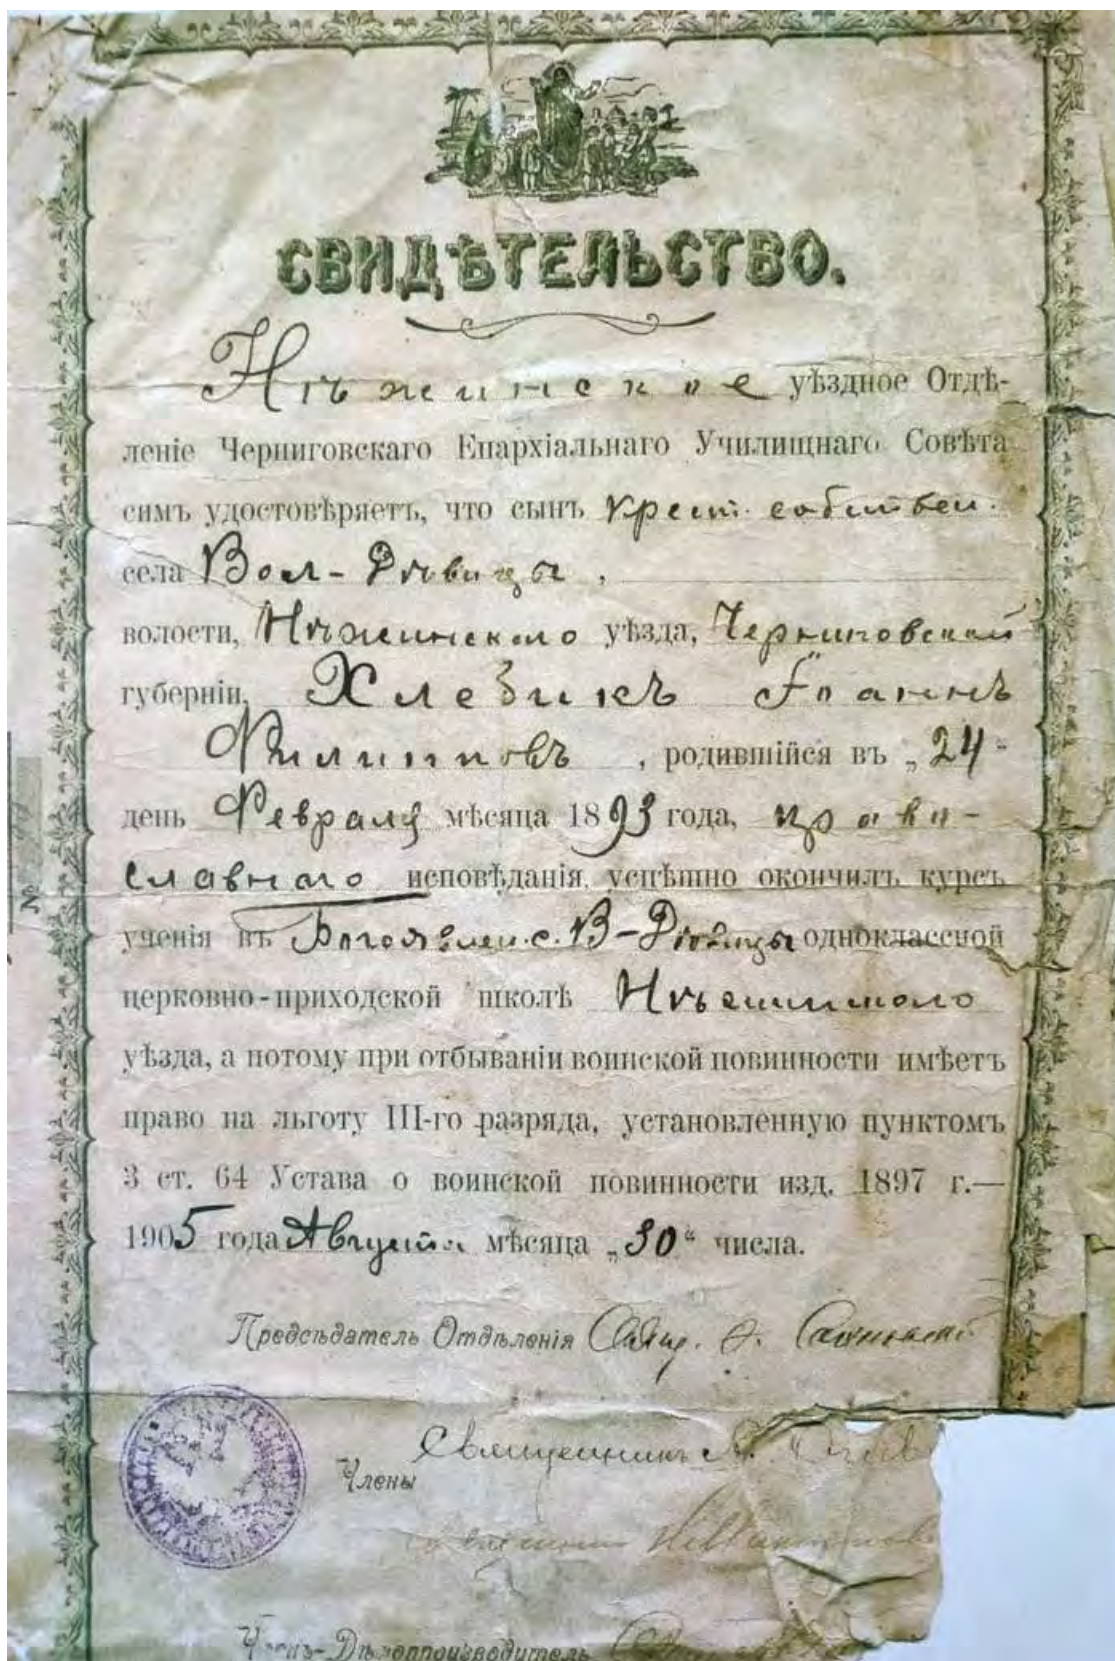 СВИДѢТЕЛЬСТВО.
Нѣжинское уѣздное Отдѣ-
леніе Черниговскаго Епархіальнаго Училищнаго Совѣта
симъ удостовѣряетъ, что сынъ крест. собствен.
села Вол-Дѣвицы,
волости, Нѣжинскаго уѣзда, Черниговской
губерніи, Хлебикъ Іоаннъ
Филипповъ, родившійся въ „24“
день Февраля мѣсяца 1893 года, право-
славнаго исповѣданія, успѣшно окончилъ курсъ
ученія въ Богоявлен. с. В-Дѣвицы одноклассной
церковно-приходской школѣ Нѣжинскаго
уѣзда, а потому при отбываніи воинской повинности имѣетъ
право на льготу III-го разряда, установленную пунктомъ
3 ст. 64 Устава о воинской повинности изд. 1897 г.—
1905 года Августа мѣсяца „30“ числа.
Предсѣдатель Отдѣленія Свящ.
Священникъ
Члены
Членъ-Дѣлопроизводитель
№